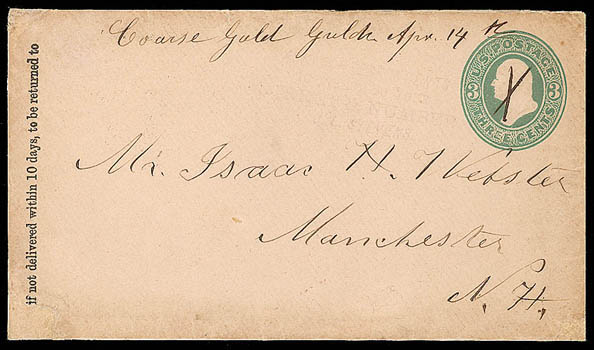 Coarse Gold Gulch Apr. 14th
U.S. POSTAGE
3 3
THREE CENTS
X
Mr. Isaac H. Webster
Manchester
N. H.
if not delivered within 10 days, to be returned to